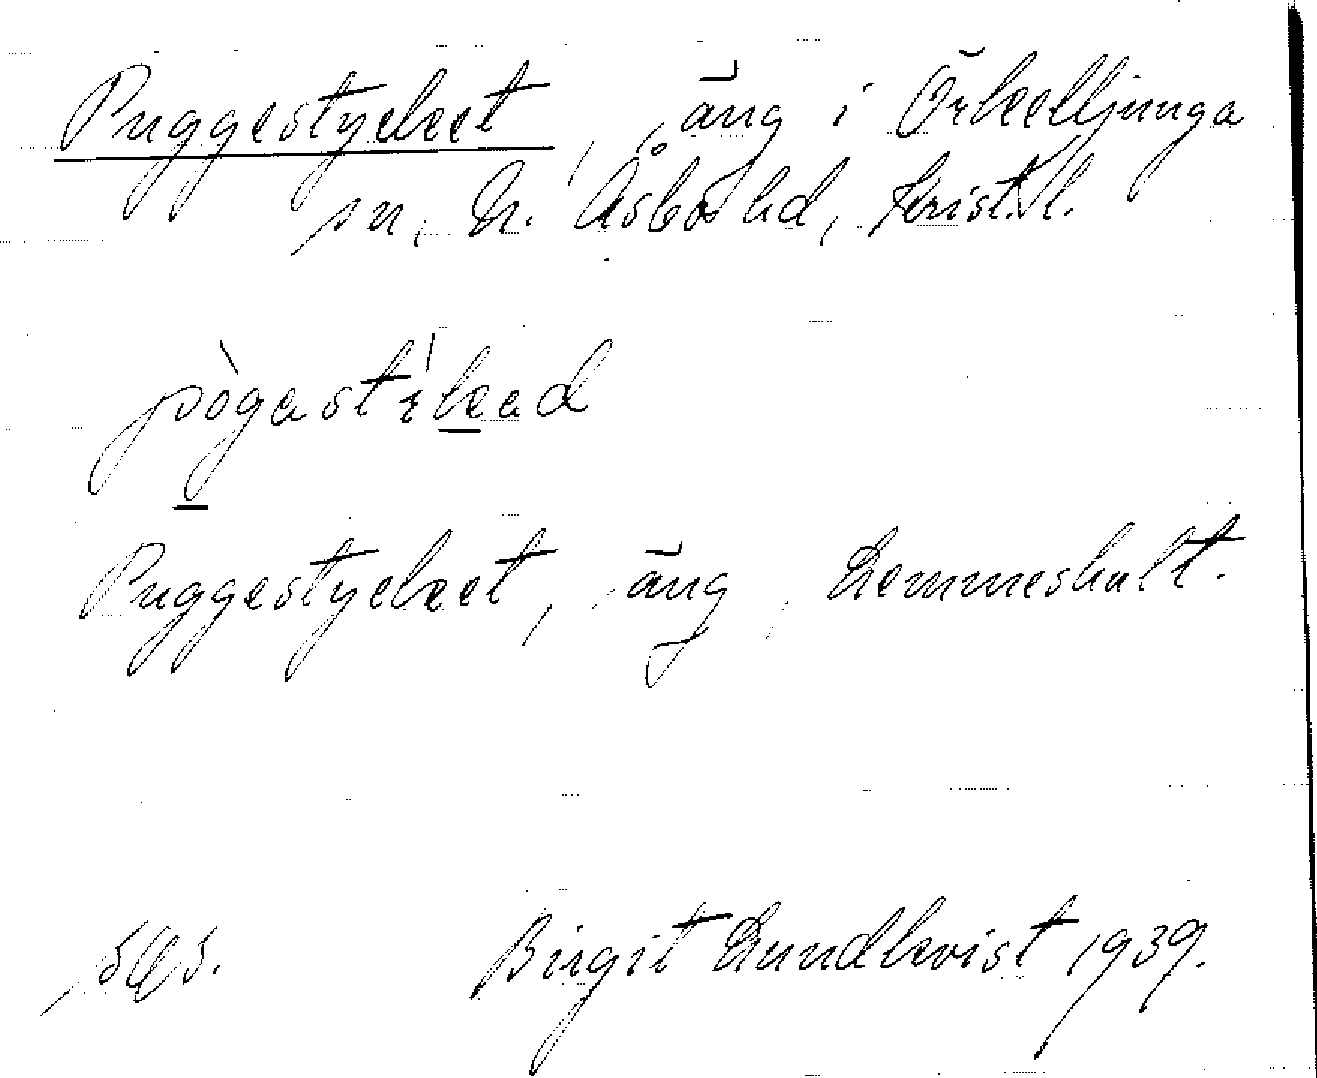 Puggestycket, äng i Örkelljunga
sn, N. Åsbo hd, Krist. l.
pògastikad
Puggestycket, äng, Lemmeshult.
Birgit Lundkvist 1939.